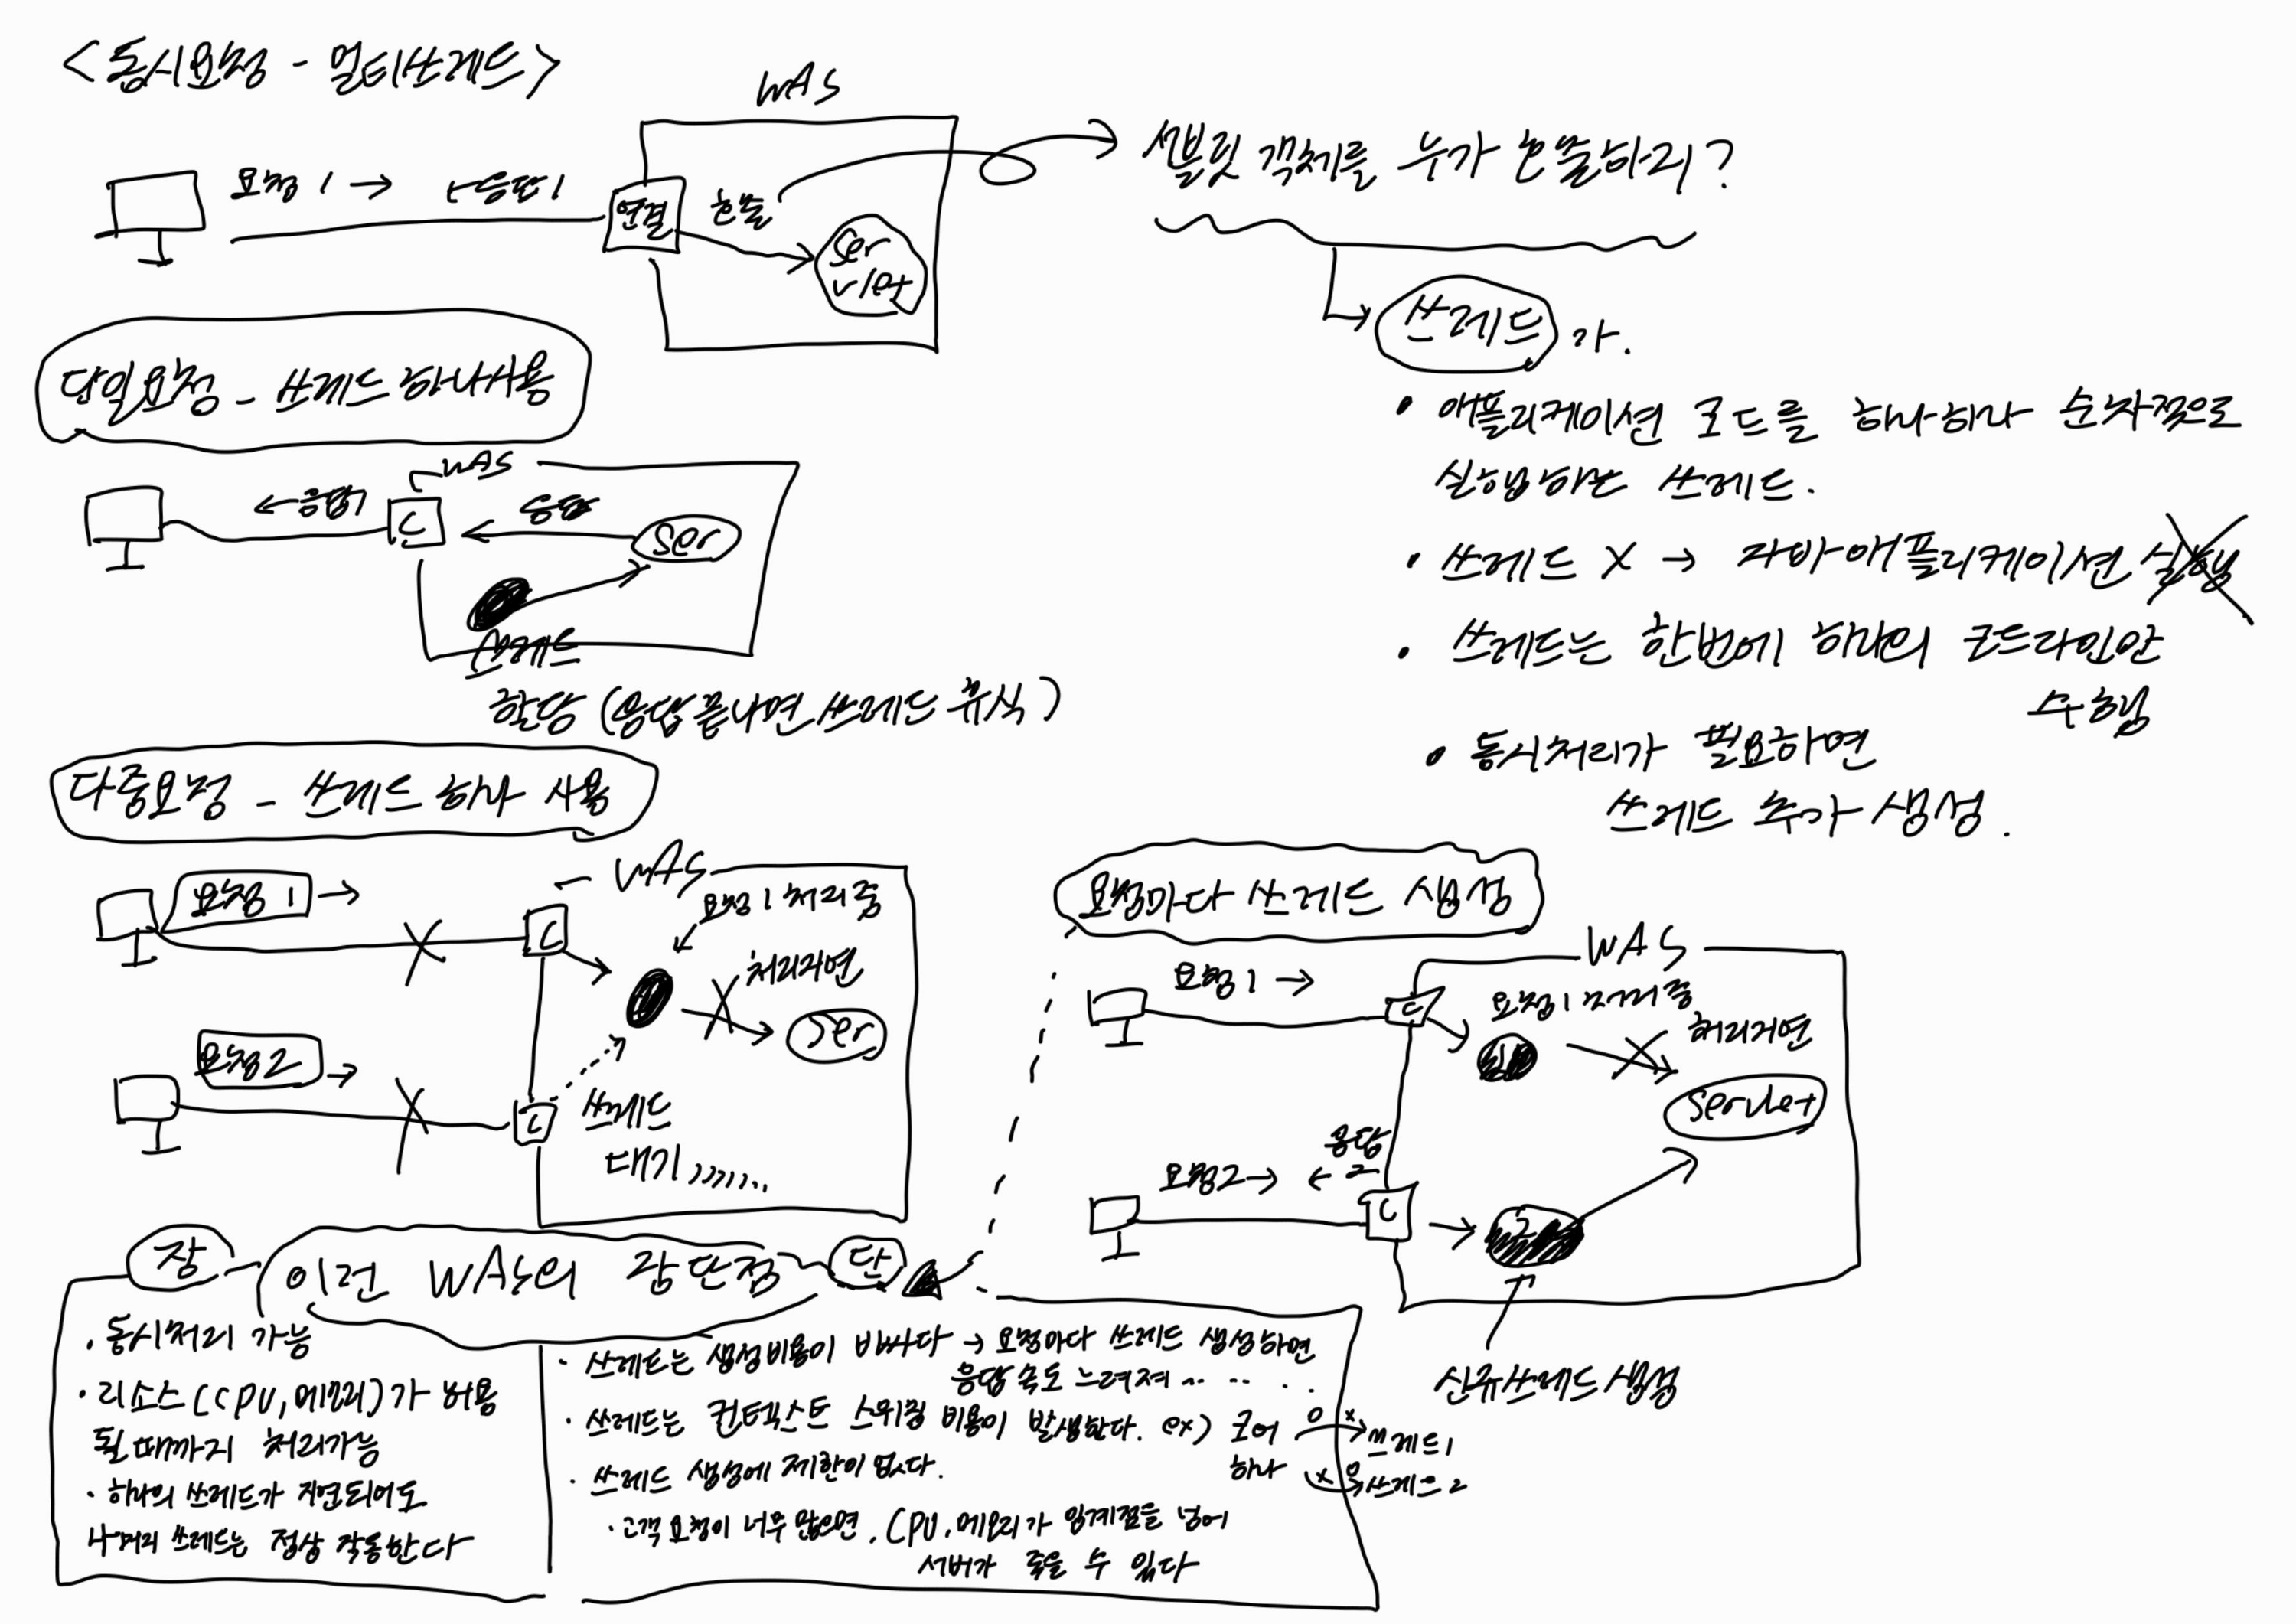 <동시요청 - 멀티쓰레드>
WAS
요청 1 → ←응답1
연결
호출
Ser
vlet
서블릿 객체를 누가 호출하리?
쓰레드 가.
• 애플리케이션 코드를 하나하나 순차적으로
실행하는 쓰레드.
• 쓰레드 X → 자바애플리케이션 실행
• 쓰레드는 한번에 하나의 코드라인만
수행
• 동시처리가 필요하면
쓰레드 추가 생성.
단일요청 - 쓰레드 하나사용
WAS
←응답1
C
응답
Ser
쓰레드
할당 (응답끝나면 쓰레드 휴식)
다중요청 - 쓰레드 하나 사용
WAS
요청 1 →
C
요청 1 처리중
처리지연
Ser
요청2 →
C
쓰레드
대기,,,,,,..
요청마다 쓰레드 생성
WAS
요청 1 →
C
요청1 처리중
처리지연
Servlet
요청2→
응답
←
C
2
신규쓰레드 생성
장
이런 WAS의 장단점
단
• 동시처리 가능
• 리소스(CPU,메모리)가 허용
될때까지 처리가능
• 하나의 쓰레드가 지연되어도
나머지 쓰레드는 정상 작동한다
• 쓰레드는 생성비용이 비싸다 → 요청마다 쓰레드 생성하면
응답속도 느려져.. .. . .
• 쓰레드는 컨텍스트 스위칭 비용이 발생한다. ex) 코어
하나
O X
쓰레드1
X O
쓰레드2
• 쓰레드 생성에 제한이 없다.
• 고객 요청이 너무 많으면, CPU, 메모리가 임계점을 넘어
서버가 죽을 수 있다